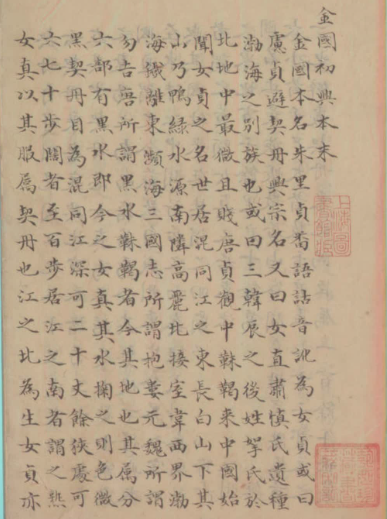 金國初興本末
金國本名朱里貞番語話音訛為女貞或曰
慮貞避契丹興宗名又曰女直肅慎氏遺種
渤海之別族也或曰三韓辰之後姓拏氏於
北地中最微且賤唐貞觀中靺鞨來中國始
聞女貞之名世居混同江之東長白山下其
山乃鴨綠水源南隣高麗北接室韋西界渤
海離東瀕海三國志所謂挹婁元魏所謂
勿吉唐所謂黑水靺鞨者今其地也其屬分
六部有黑水即今之女真其水掬之則色微
黑契丹目為混同江深可二十丈餘狹處可
六七十步闊者至百步居江之南者謂之熟
女真以其服屬契丹也江之北為生女貞亦